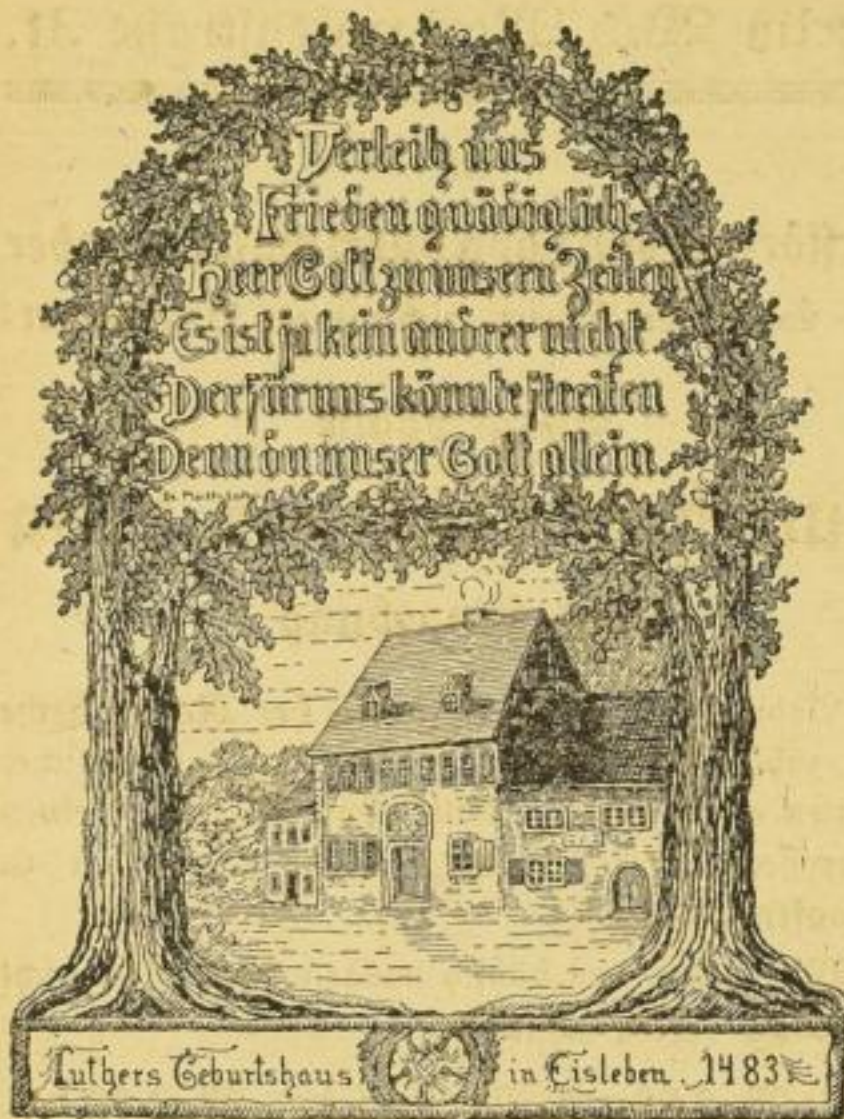 Verleih uns
Frieden gnädiglich
Herr Gott zu unsern Zeiten
Es ist ja kein andrer nicht
Der für uns könnte streiten
Denn du unser Gott allein.
Dr. Martin Luther
Luthers Geburtshaus in Eisleben. 1483